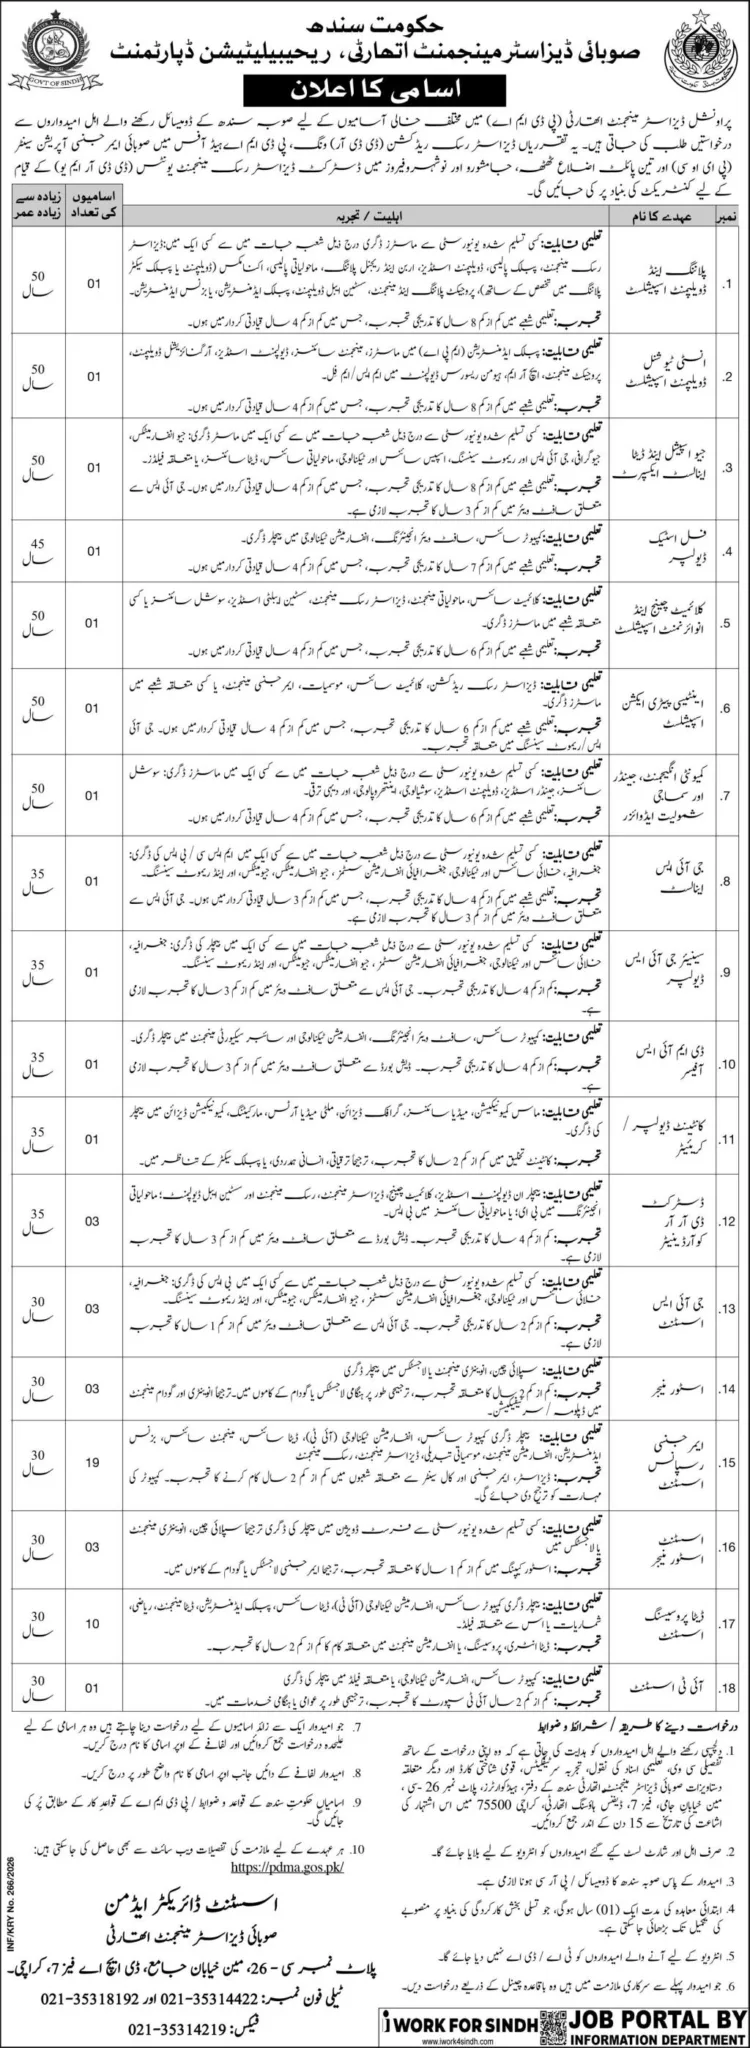 حکومت سندھ
صوبائی ڈیزاسٹر مینجمنٹ اتھارٹی، ریحیبیلیٹیشن ڈپارٹمنٹ
GOVT OF SINDH
اسامی کا اعلان
پراونشل ڈیزاسٹر مینجمنٹ اتھارٹی (پی ڈی ایم اے) میں مختلف خالی آسامیوں کے لیے صوبہ سندھ کے ڈومیسائل رکھنے والے اہل امیدواروں سے
درخواستیں طلب کی جاتی ہیں۔ یہ تقرریاں ڈیزاسٹر رسک ریڈکشن (ڈی ڈی آر) ونگ، پی ڈی ایم اے ہیڈ آفس میں صوبائی ایمرجنسی آپریشن سینٹر
(پی ای او سی) اور تین پائلٹ اضلاع ٹھٹھہ، جامشورو اور نوشہرو فیروز میں ڈسٹرکٹ ڈیزاسٹر رسک مینجمنٹ یونٹس (ڈی ڈی آر ایم یو) کے قیام
کے لیے کنٹریکٹ کی بنیاد پر کی جائیں گی۔
نمبر عہدے کا نام اہلیت / تجربہ اسامیوں کی تعداد زیادہ سے زیادہ عمر
1. پلاننگ اینڈ ڈویلپمنٹ اسپیشلسٹ
تعلیمی قابلیت: کسی تسلیم شدہ یونیورسٹی سے ماسٹرز ڈگری درج ذیل شعبہ جات میں سے کسی ایک میں: ڈیزاسٹر
رسک مینجمنٹ، پبلک پالیسی، ڈویلپمنٹ اسٹڈیز، اربن اینڈ ریجنل پلاننگ، ماحولیاتی پالیسی، اکنامکس (ڈویلپمنٹ یا پبلک سیکٹر
پلاننگ میں تخصص کے ساتھ)، پروجیکٹ پلاننگ اینڈ مینجمنٹ، سسٹین ایبل ڈویلپمنٹ، پبلک ایڈمنسٹریشن، یا بزنس ایڈمنسٹریشن۔
تجربہ: تعلیمی شعبے میں کم از کم 8 سال کا تدریجی تجربہ، جس میں کم از کم 4 سال قیادتی کردار میں ہوں۔
01
50 سال
2. انسٹی ٹیوشنل ڈویلپمنٹ اسپیشلسٹ
تعلیمی قابلیت: پبلک ایڈمنسٹریشن (ایم پی اے) میں ماسٹرز، مینجمنٹ سائنسز، ڈیولپمنٹ اسٹڈیز، آرگنائزیشنل ڈویلپمنٹ،
پروجیکٹ مینجمنٹ، ایچ آر ایم، ہیومن ریسورس ڈیولپمنٹ میں ایم ایس/ایم فل۔
تجربہ: تعلیمی شعبے میں کم از کم 8 سال کا تدریجی تجربہ، جس میں کم از کم 4 سال قیادتی کردار میں ہوں۔
01
50 سال
3. جیو اسپیشل اینڈ ڈیٹا اینالسٹ ایکسپرٹ
تعلیمی قابلیت: کسی تسلیم شدہ یونیورسٹی سے درج ذیل شعبہ جات میں سے کسی ایک میں ماسٹر ڈگری: جیو انفارمیٹکس،
جیوگرافی، جی آئی ایس اور ریموٹ سینسنگ، اسپیس سائنس اور ٹیکنالوجی، ماحولیاتی سائنس، ڈیٹا سائنسز، یا متعلقہ فیلڈز۔
تجربہ: تعلیمی شعبے میں کم از کم 8 سال کا تدریجی تجربہ، جس میں کم از کم 4 سال قیادتی کردار میں ہوں۔ جی آئی ایس سے
متعلق سافٹ ویئر میں کم از کم 3 سال کا تجربہ لازمی ہے۔
01
50 سال
4. فل اسٹیک ڈیولپر
تعلیمی قابلیت: کمپیوٹر سائنس، سافٹ ویئر انجینئرنگ، انفارمیشن ٹیکنالوجی میں بیچلر ڈگری۔
تجربہ: تعلیمی شعبے میں کم از کم 7 سال کا تدریجی تجربہ، جس میں کم از کم 4 سال قیادتی کردار میں ہوں۔
01
45 سال
5. کلائمیٹ چینج اینڈ انوائرنمنٹ اسپیشلسٹ
تعلیمی قابلیت: کلائمیٹ سائنس، ماحولیاتی مینجمنٹ، ڈیزاسٹر رسک مینجمنٹ، سسٹین ایبلٹی اسٹڈیز، سوشل سائنسز یا کسی
متعلقہ شعبے میں ماسٹرز ڈگری۔
تجربہ: تعلیمی شعبے میں کم از کم 6 سال کا تدریجی تجربہ، جس میں کم از کم 4 سال قیادتی کردار میں ہوں۔
01
50 سال
6. اینٹیسی پیٹری ایکشن اسپیشلسٹ
تعلیمی قابلیت: ڈیزاسٹر رسک ریڈکشن، کلائمیٹ سائنس، موسمیات، ایمرجنسی مینجمنٹ، یا کسی متعلقہ شعبے میں
ماسٹرز ڈگری۔
تجربہ: تعلیمی شعبے میں کم از کم 6 سال کا تدریجی تجربہ، جس میں کم از کم 4 سال قیادتی کردار میں ہوں۔ جی آئی
ایس/ریموٹ سینسنگ میں متعلقہ تجربہ۔
01
50 سال
7. کمیونٹی انگیجمنٹ، جینڈر اور سماجی شمولیت ایڈوائزر
تعلیمی قابلیت: کسی تسلیم شدہ یونیورسٹی سے درج ذیل شعبہ جات میں سے کسی ایک میں ماسٹرز ڈگری: سوشل
سائنسز، جینڈر اسٹڈیز، ڈویلپمنٹ اسٹڈیز، سوشیالوجی، اینتھروپالوجی، اور دیہی ترقی۔
تجربہ: تعلیمی شعبے میں کم از کم 6 سال کا تدریجی تجربہ، جس میں کم از کم 4 سال قیادتی کردار میں ہوں۔
01
50 سال
8. جی آئی ایس اینالسٹ
تعلیمی قابلیت: کسی تسلیم شدہ یونیورسٹی سے درج ذیل شعبہ جات میں سے کسی ایک میں ایم ایس سی / بی ایس کی ڈگری:
جغرافیہ، خلائی سائنس اور ٹیکنالوجی، جغرافیائی انفارمیشن سسٹمز، جیو انفارمیٹکس، جیومیٹکس، اور اینڈ ریموٹ سینسنگ۔
تجربہ: تعلیمی شعبے میں کم از کم 4 سال کا تدریجی تجربہ، جس میں کم از کم 3 سال قیادتی کردار میں ہوں۔ جی آئی ایس سے
متعلق سافٹ ویئر میں کم از کم 3 سال کا تجربہ لازمی ہے۔
01
35 سال
9. سینیئر جی آئی ایس ڈیولپر
تعلیمی قابلیت: کسی تسلیم شدہ یونیورسٹی سے درج ذیل شعبہ جات میں سے کسی ایک میں بیچلر کی ڈگری: جغرافیہ،
خلائی سائنس اور ٹیکنالوجی، جغرافیائی انفارمیشن سسٹمز، جیو انفارمیٹکس، جیومیٹکس، اور اینڈ ریموٹ سینسنگ۔
تجربہ: کم از کم 4 سال کا تدریجی تجربہ۔ جی آئی ایس سے متعلق سافٹ ویئر میں کم از کم 3 سال کا تجربہ لازمی
ہے۔
01
35 سال
10. ڈی ایم آئی ایس آفیسر
تعلیمی قابلیت: کمپیوٹر سائنس، سافٹ ویئر انجینئرنگ، انفارمیشن ٹیکنالوجی اور سائبر سیکیورٹی مینجمنٹ میں بیچلر ڈگری۔
تجربہ: کم از کم 4 سال کا تدریجی تجربہ۔ ڈیش بورڈ سے متعلق سافٹ ویئر میں کم از کم 3 سال کا تجربہ لازمی
ہے۔
01
35 سال
11. کانٹینٹ ڈیولپر / کریئیٹر
تعلیمی قابلیت: ماس کمیونیکیشن، میڈیا سائنسز، گرافک ڈیزائن، ملٹی میڈیا آرٹس، مارکیٹنگ، کمیونیکیشن ڈیزائن میں بیچلر
کی ڈگری۔
تجربہ: کانٹینٹ تخلیق میں کم از کم 2 سال کا تجربہ، ترجیحاً ترقیاتی، انسانی ہمدردی، یا پبلک سیکٹر کے تناظر میں۔
01
35 سال
12. ڈسٹرکٹ ڈی آر آر کوآرڈینیٹر
تعلیمی قابلیت: بیچلر ان ڈیولپمنٹ اسٹڈیز، کلائمیٹ چینج، ڈیزاسٹر مینجمنٹ، رسک مینجمنٹ اور سسٹین ایبل ڈیولپمنٹ؛ ماحولیاتی
انجینئرنگ میں بی ای؛ یا ماحولیاتی سائنسز میں بی ایس۔
تجربہ: کم از کم 4 سال کا تدریجی تجربہ۔ ڈیش بورڈ سے متعلق سافٹ ویئر میں کم از کم 3 سال کا تجربہ
لازمی ہے۔
03
35 سال
13. جی آئی ایس اسسٹنٹ
تعلیمی قابلیت: کسی تسلیم شدہ یونیورسٹی سے درج ذیل شعبہ جات میں سے کسی ایک میں بی ایس کی ڈگری: جغرافیہ،
خلائی سائنس اور ٹیکنالوجی، جغرافیائی انفارمیشن سسٹمز، جیو انفارمیٹکس، جیومیٹکس، اور اینڈ ریموٹ سینسنگ۔
تجربہ: کم از کم 2 سال کا تدریجی تجربہ۔ جی آئی ایس سے متعلق سافٹ ویئر میں کم از کم 1 سال کا تجربہ
لازمی ہے۔
03
30 سال
14. اسٹور منیجر
تعلیمی قابلیت: سپلائی چین، انوینٹری مینجمنٹ یا لاجسٹکس میں بیچلر ڈگری
تجربہ: کم از کم 2 سال کا متعلقہ تجربہ، ترجیحی طور پر ہنگامی لاجسٹکس یا گودام کے کاموں میں۔ ترجیحاً انوینٹری اور گودام مینجمنٹ
میں ڈپلومہ / سرٹیفکیشن۔
03
30 سال
15. ایمرجنسی رسپانس اسسٹنٹ
تعلیمی قابلیت: بیچلر ڈگری کمپیوٹر سائنس، انفارمیشن ٹیکنالوجی (آئی ٹی)، ڈیٹا سائنس، مینجمنٹ سائنس، بزنس
ایڈمنسٹریشن، انفارمیشن مینجمنٹ، موسمیاتی تبدیلی، ڈیزاسٹر مینجمنٹ، رسک مینجمنٹ
تجربہ: ڈیزاسٹر، ایمرجنسی اور کال سینٹر سے متعلقہ شعبوں میں کم از کم 2 سال کام کرنے کا تجربہ۔ کمپیوٹر کی
مہارت کو ترجیح دی جائے گی۔
19
30 سال
16. اسسٹنٹ اسٹور منیجر
تعلیمی قابلیت: کسی تسلیم شدہ یونیورسٹی سے فرسٹ ڈویژن میں بیچلر کی ڈگری ترجیحاً سپلائی چین، انوینٹری مینجمنٹ
یا لاجسٹکس میں
تجربہ: اسٹور کیپنگ میں کم از کم 1 سال کا متعلقہ تجربہ، ترجیحاً ایمرجنسی لاجسٹکس یا گودام کے کاموں میں۔
03
30 سال
17. ڈیٹا پروسیسنگ اسسٹنٹ
تعلیمی قابلیت: بیچلر ڈگری کمپیوٹر سائنس، انفارمیشن ٹیکنالوجی (آئی ٹی)، ڈیٹا سائنس، پبلک ایڈمنسٹریشن، ڈیٹا مینجمنٹ، ریاضی،
شماریات یا اس سے متعلقہ فیلڈ۔
تجربہ: ڈیٹا انٹری، پروسیسنگ، یا انفارمیشن مینجمنٹ میں متعلقہ کام کا کم از کم 2 سال کا تجربہ۔
10
30 سال
18. آئی ٹی اسسٹنٹ
تعلیمی قابلیت: کمپیوٹر سائنس، انفارمیشن ٹیکنالوجی، یا متعلقہ فیلڈ میں بیچلر کی ڈگری
تجربہ: کم از کم 2 سال آئی ٹی سپورٹ کا تجربہ، ترجیحی طور پر عوامی یا ہنگامی خدمات میں۔
01
30 سال
درخواست دینے کا طریقہ / شرائط و ضوابط
1. دلچسپی رکھنے والے اہل امیدواروں کو ہدایت کی جاتی ہے کہ وہ اپنی درخواست کے ساتھ
تفصیلی سی وی، تعلیمی اسناد کی نقول، تجربہ سرٹیفکیٹس، قومی شناختی کارڈ اور دیگر متعلقہ
دستاویزات صوبائی ڈیزاسٹر مینجمنٹ اتھارٹی سندھ کے دفتر، ہیڈکوارٹرز، پلاٹ نمبر 26-سی،
مین خیابانِ جامی، فیز 7، ڈیفنس ہاؤسنگ اتھارٹی، کراچی 75500 میں اس اشتہار کی
اشاعت کی تاریخ سے 15 دن کے اندر جمع کروائیں۔
2. صرف اہل اور شارٹ لسٹ کیے گئے امیدواروں کو انٹرویو کے لیے بلایا جائے گا۔
3. امیدوار کے پاس صوبہ سندھ کا ڈومیسائل / پی آر سی ہونا لازمی ہے۔
4. ابتدائی معاہدہ کی مدت ایک (01) سال ہوگی، جو تسلی بخش کارکردگی کی بنیاد پر منصوبے
کی تکمیل تک بڑھائی جاسکتی ہے۔
5. انٹرویو کے لیے آنے والے امیدواروں کو ٹی اے / ڈی اے نہیں دیا جائے گا۔
6. جو امیدوار پہلے سے سرکاری ملازمت میں ہیں وہ باقاعدہ چینل کے ذریعے درخواست دیں۔
7. جو امیدوار ایک سے زائد اسامیوں کے لیے درخواست دینا چاہتے ہیں وہ ہر اسامی کے لیے
علیحدہ درخواست جمع کروائیں اور لفافے کے اوپر اسامی کا نام درج کریں۔
8. امیدوار لفافے کے دائیں جانب اوپر اسامی کا نام واضح طور پر درج کریں۔
9. اسامیاں حکومتِ سندھ کے قواعد و ضوابط / پی ڈی ایم اے کے قواعدِ کار کے مطابق پُر کی
جائیں گی۔
10. ہر عہدے کے لیے ملازمت کی تفصیلات ویب سائٹ سے بھی حاصل کی جاسکتی ہیں:
https://pdma.gos.pk/
اسسٹنٹ ڈائریکٹر ایڈمن
صوبائی ڈیزاسٹر مینجمنٹ اتھارٹی
پلاٹ نمبر سی - 26، مین خیابان جامع، ڈی ایچ اے فیز 7، کراچی۔
ٹیلی فون نمبر: 021-35314422 اور 021-35318192
فیکس: 021-35314219
INF/KRY No. 266/2026
i WORK FOR SINDH
www.iwork4sindh.com
JOB PORTAL BY
INFORMATION DEPARTMENT